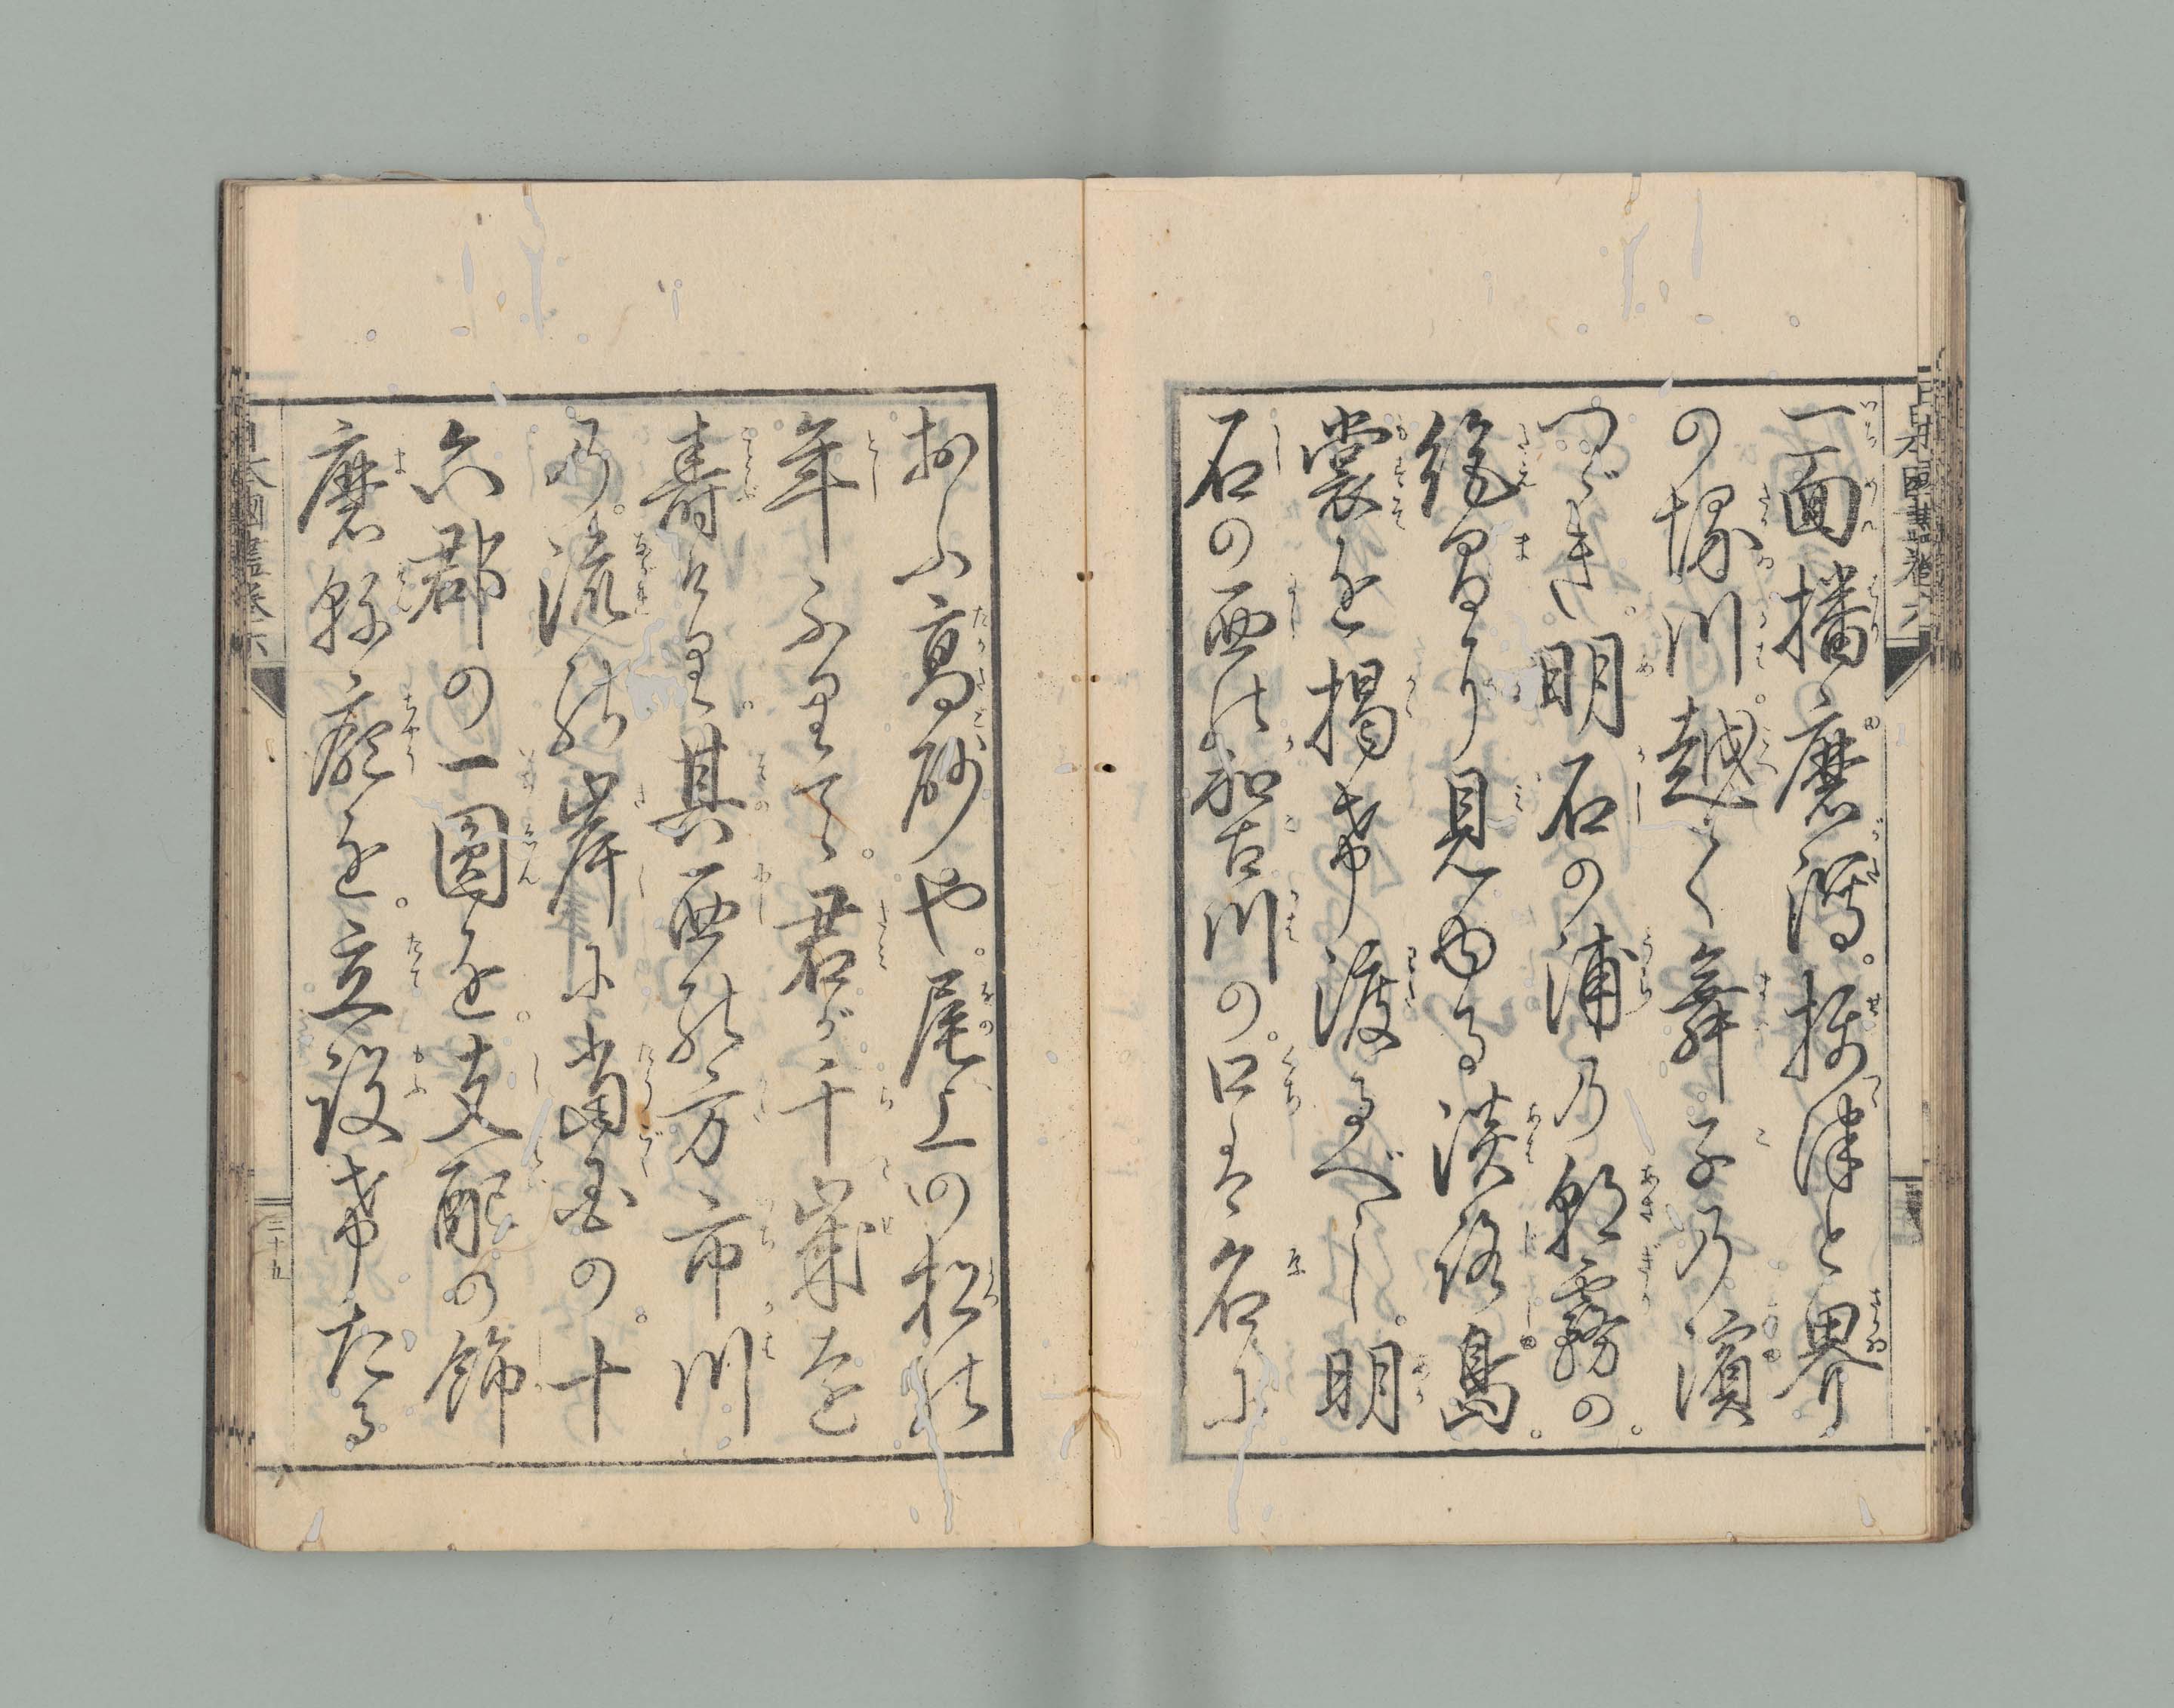 一面播磨潟。摂津と界
の境川。越て舞子乃濱
つゞき。明石の浦乃朝霧の。
絶間より見ゆる淡路島。
裳を掲き渡るべし。明
石の西の加古川の。口は名に
おふ高砂や。尾上の松の
年ふりて。君が千歳を
寿けり。其西の方市川
乃。流の岸に当国の。十
六郡の一圓を。支配の飾
磨縣廳を。立設きたる
三十五